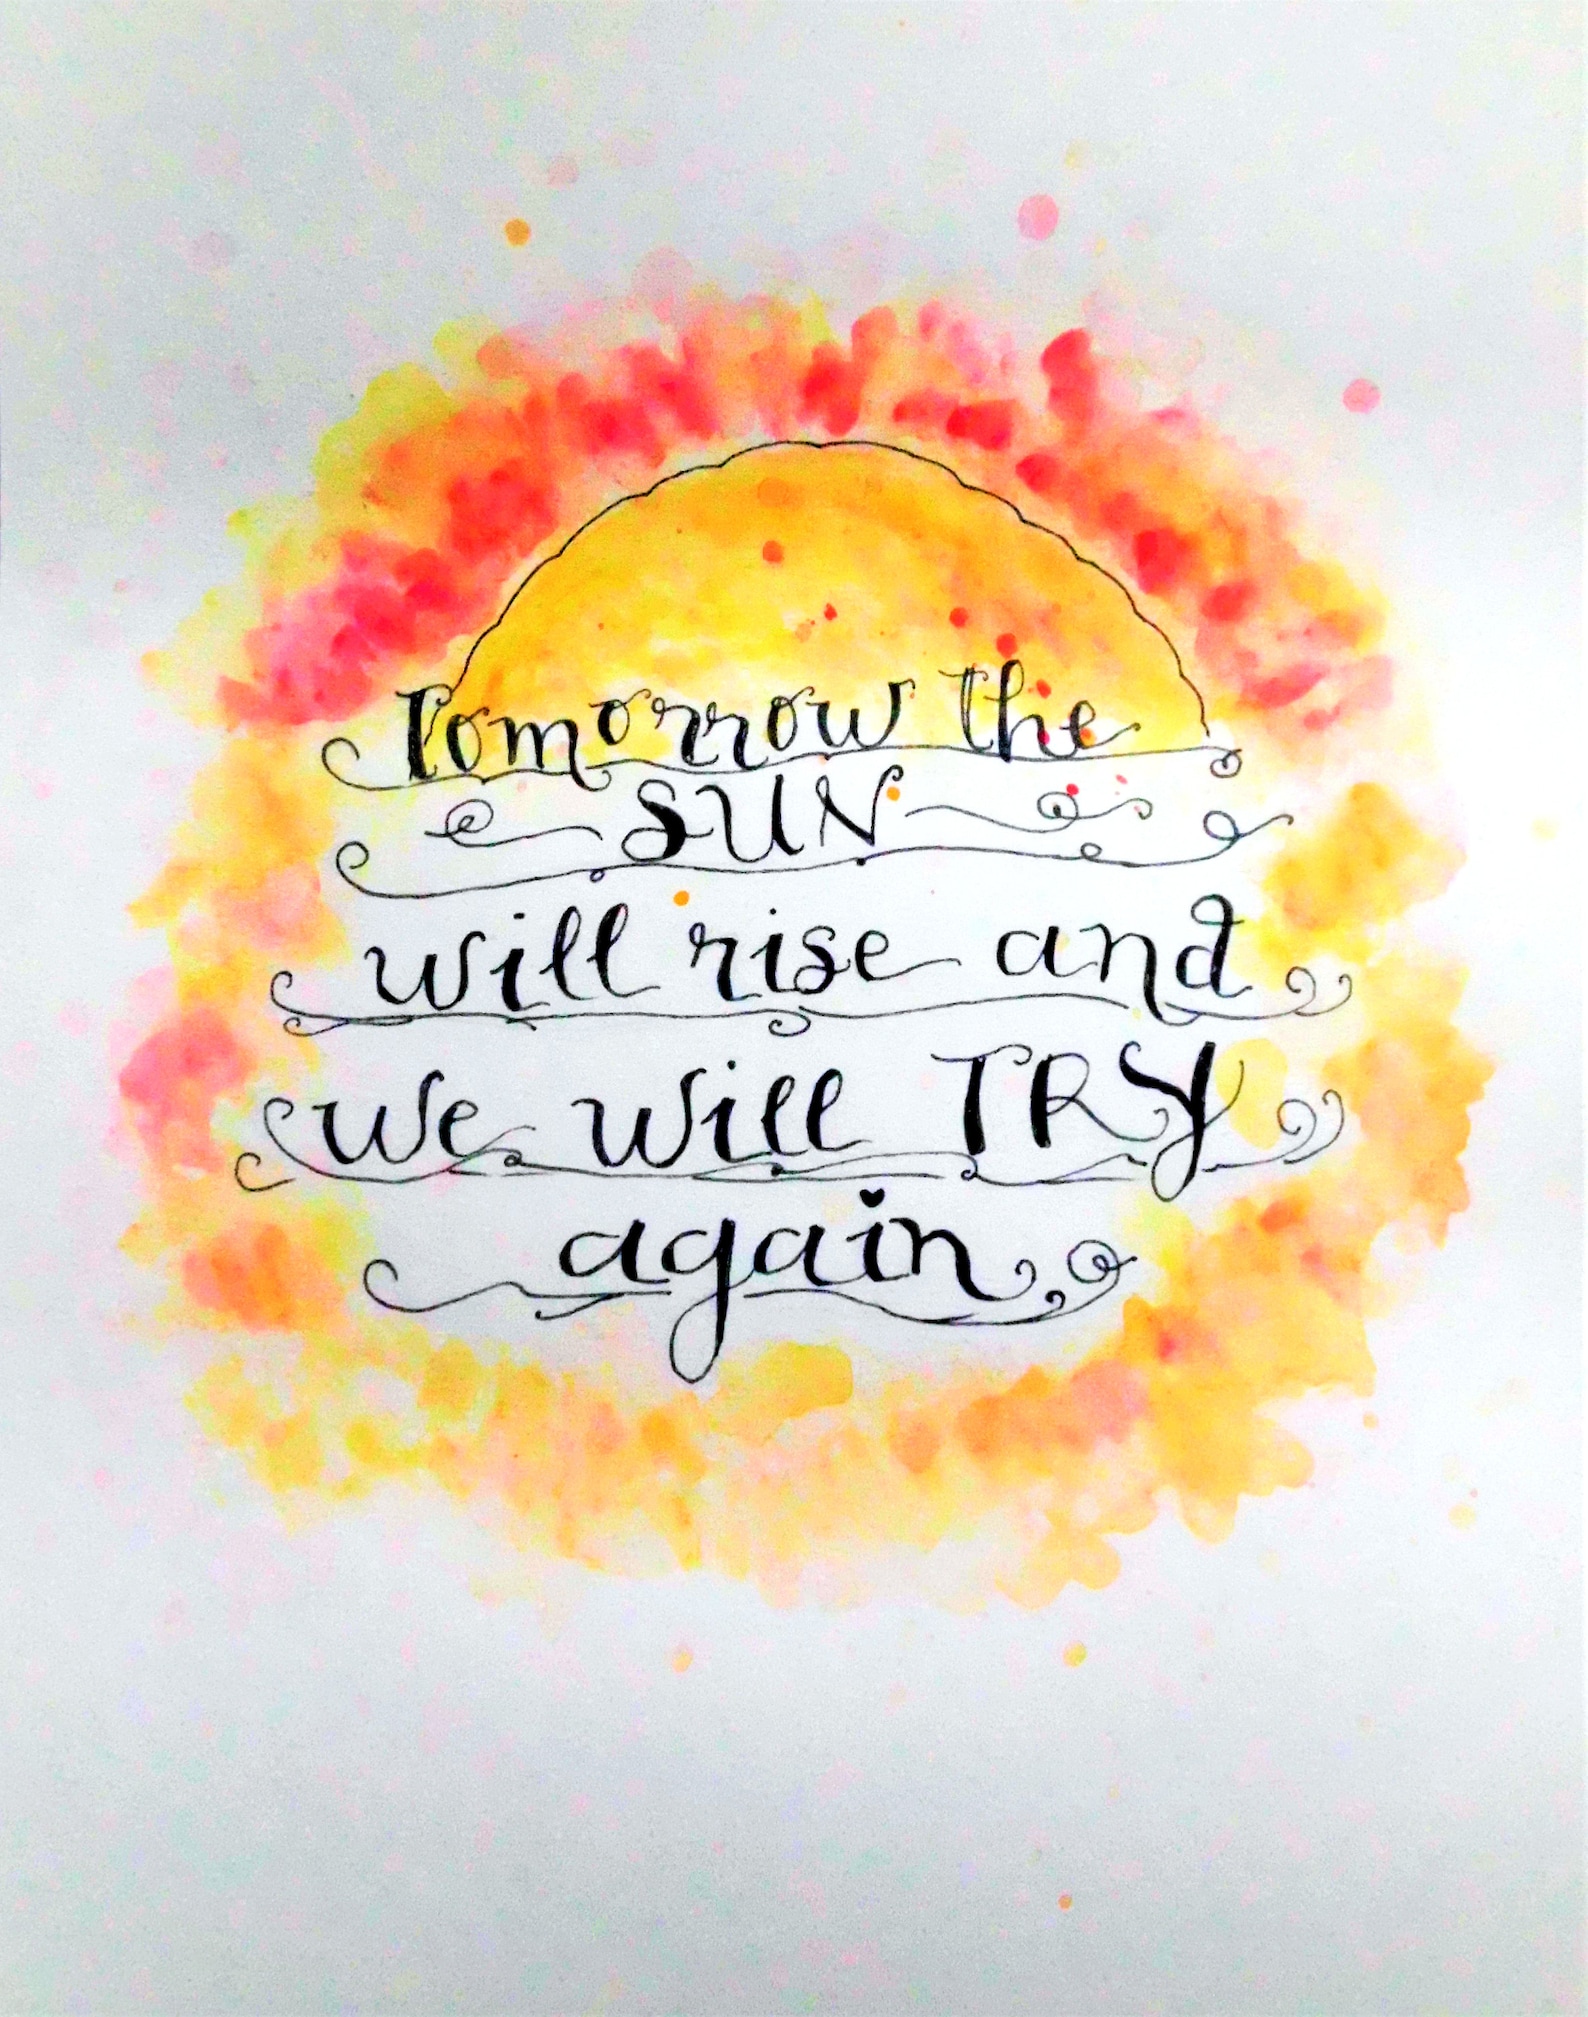 Tomorrow the
SUN
will rise and
we will TRY
again